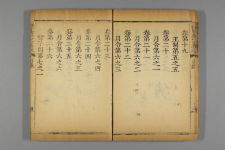 卷第十九
王制第五之五
卷第二十
月令第六之一
卷第二十一
月令第六之二
卷第二十二
月令第六之三
卷第二十三
月令第六之四
卷第二十四
月令第六之五
卷第二十五
月令第六之六
卷第二十六